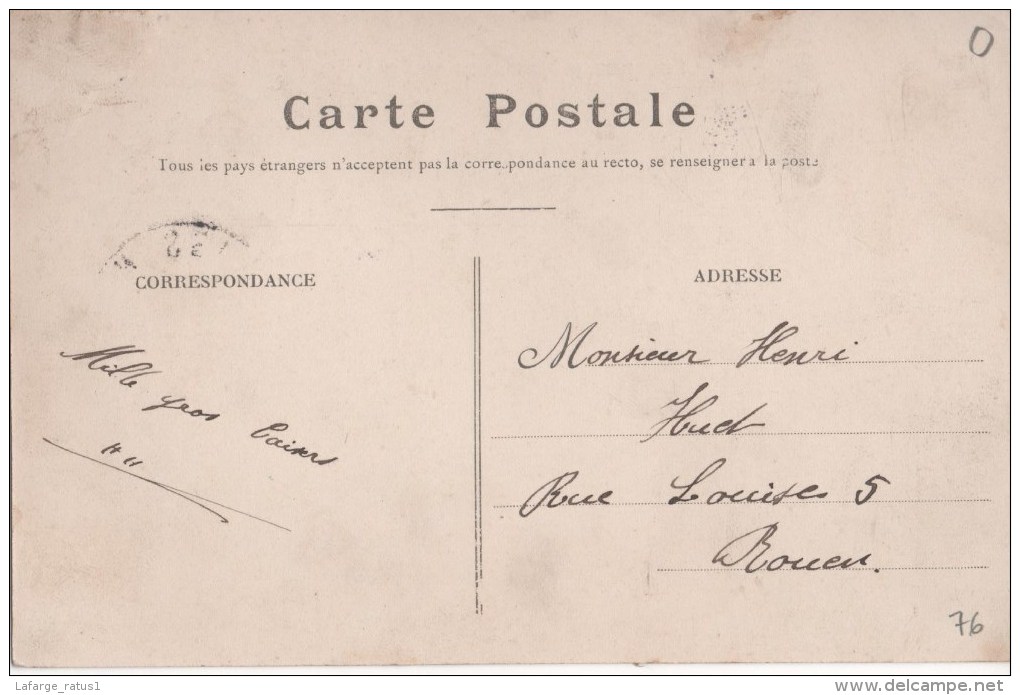 O
Carte Postale
Tous les pays étrangers n'acceptent pas la corre..pondance au recto, se renseigner a la poste
CORRESPONDANCE
Mille gros baisers
"
ADRESSE
Monsieur Henri
Huet
Rue Louises 5
Rouen.
76
Lafarge_ratus1
www.delcampe.net